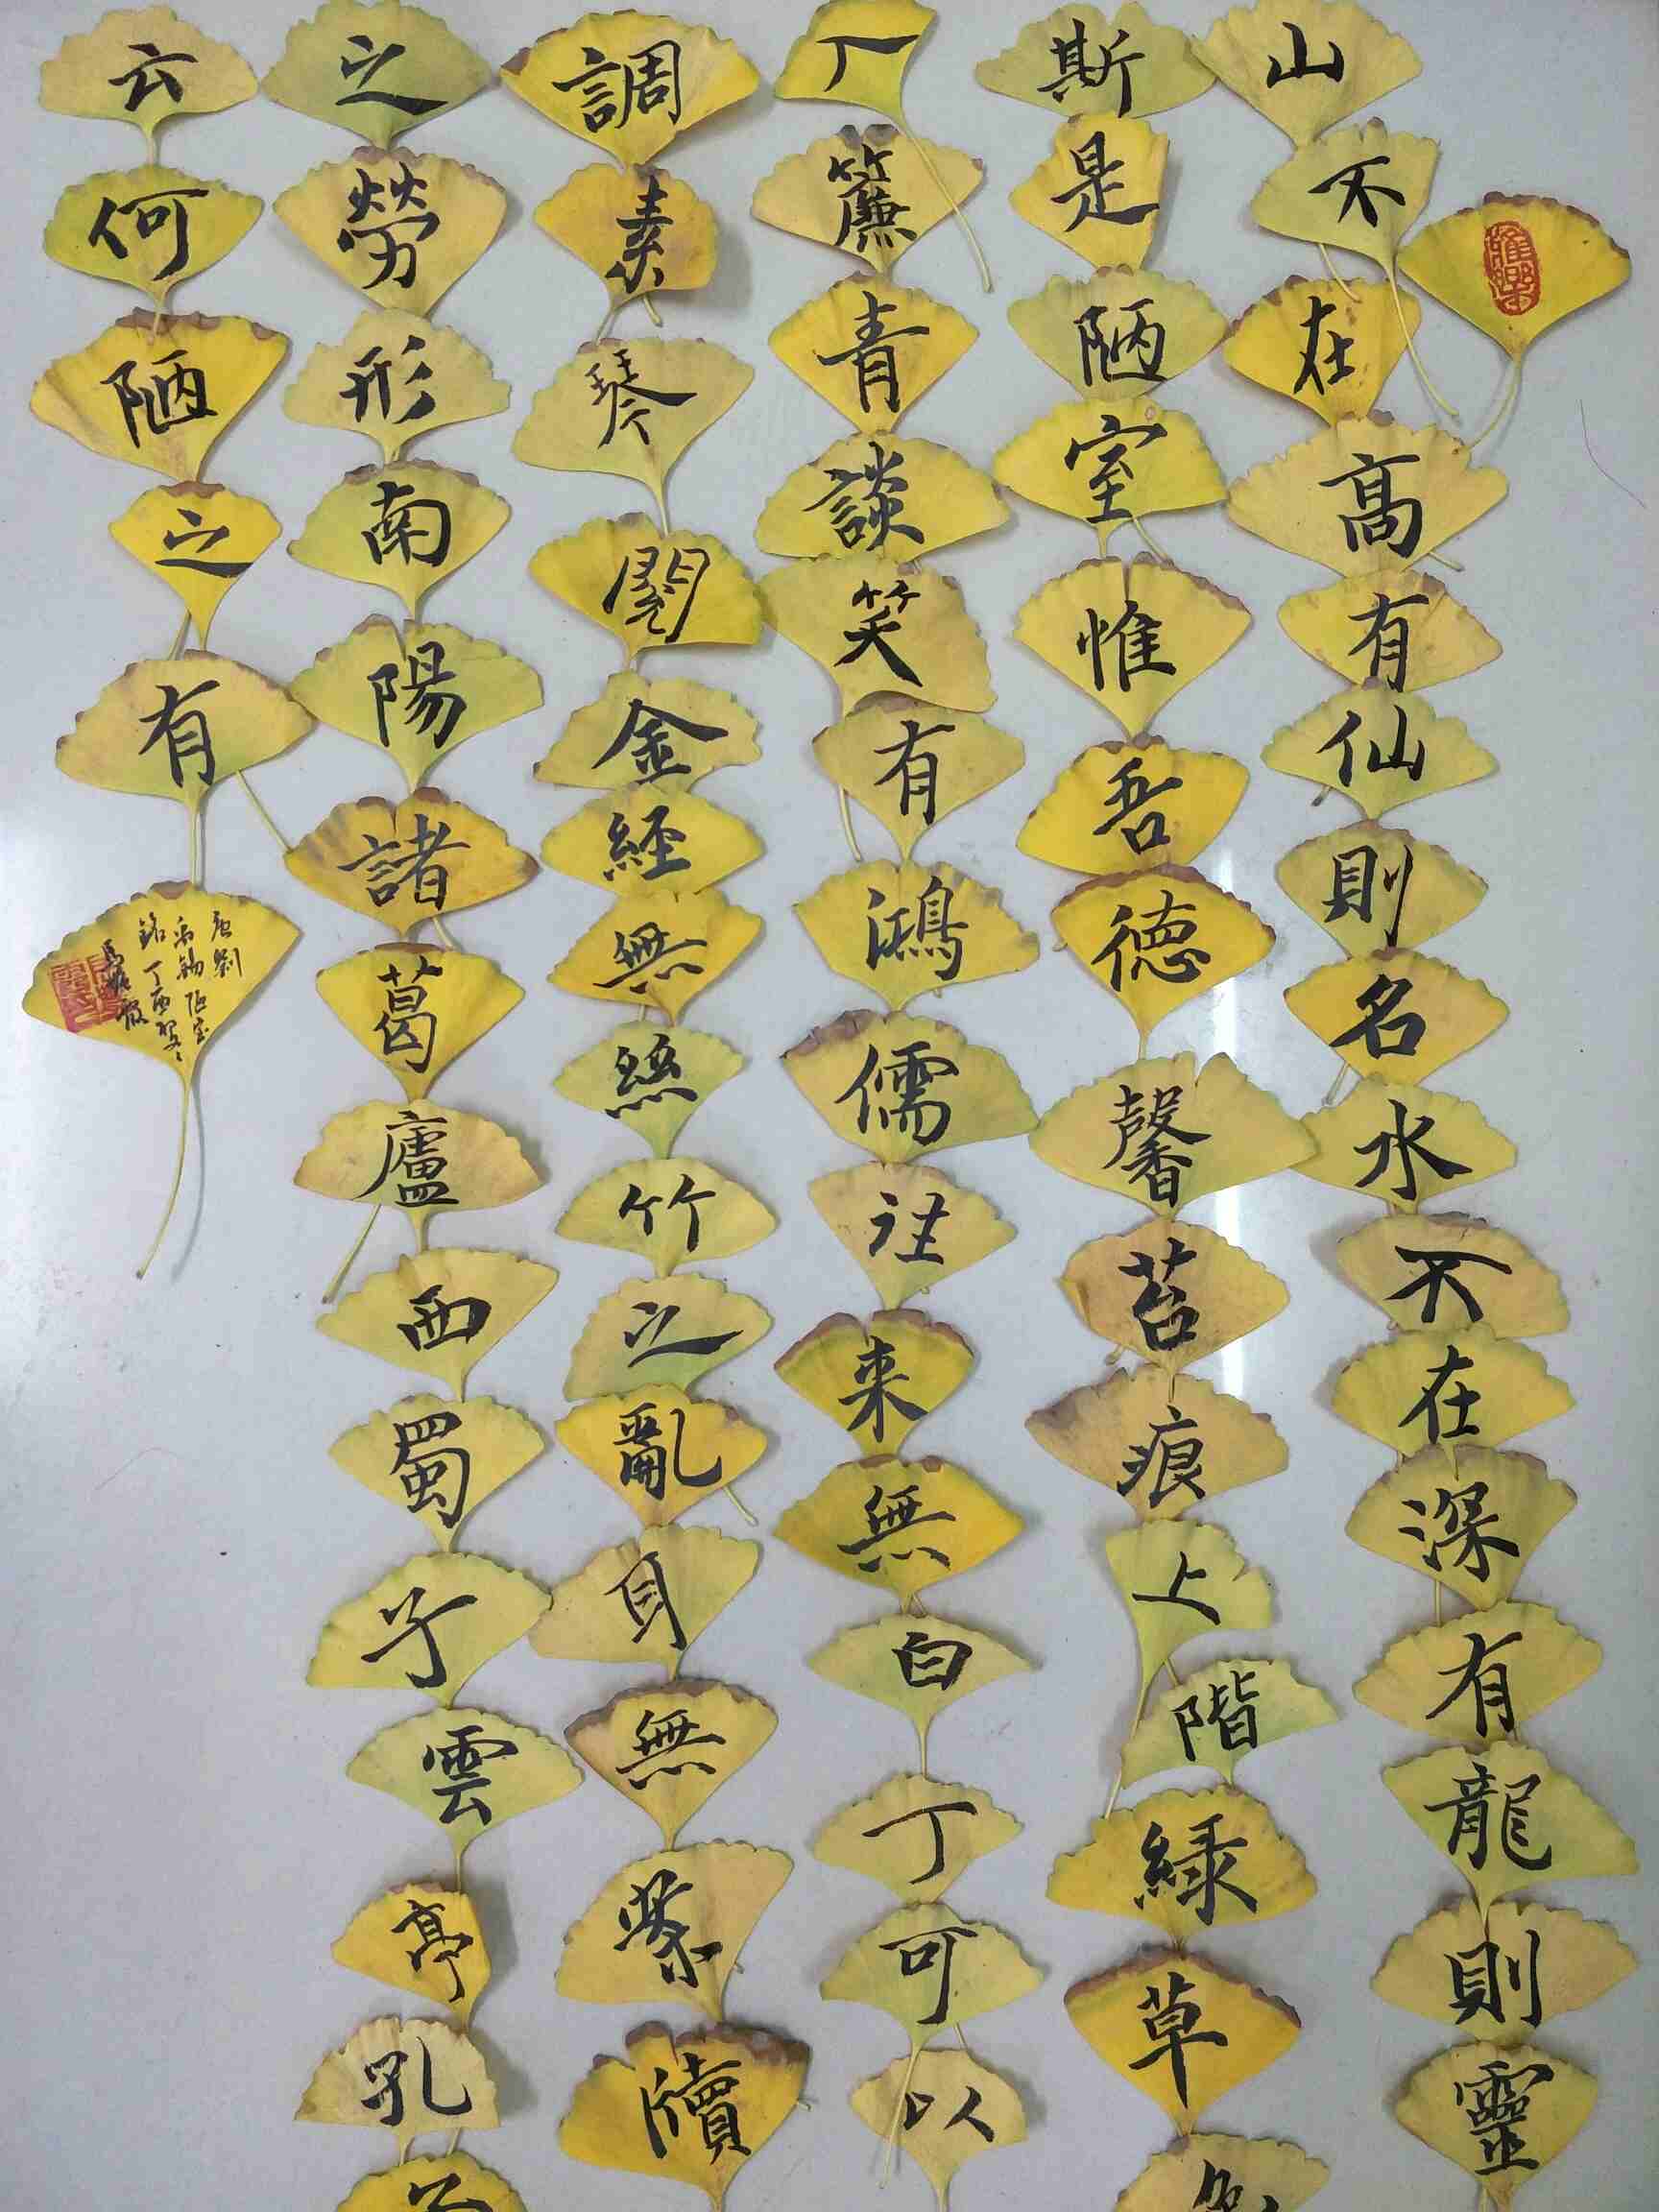 山不在高有仙則名水不在深有龍則靈
斯是陋室惟吾德馨苔痕上階緑草色
入簾青談笑有鴻儒往来無白丁可以
調素琴閱金經無絲竹之亂耳無案牘
之勞形南陽諸葛廬西蜀子雲亭孔子
云何陋之有
唐劉
禹錫陋室
銘丁酉